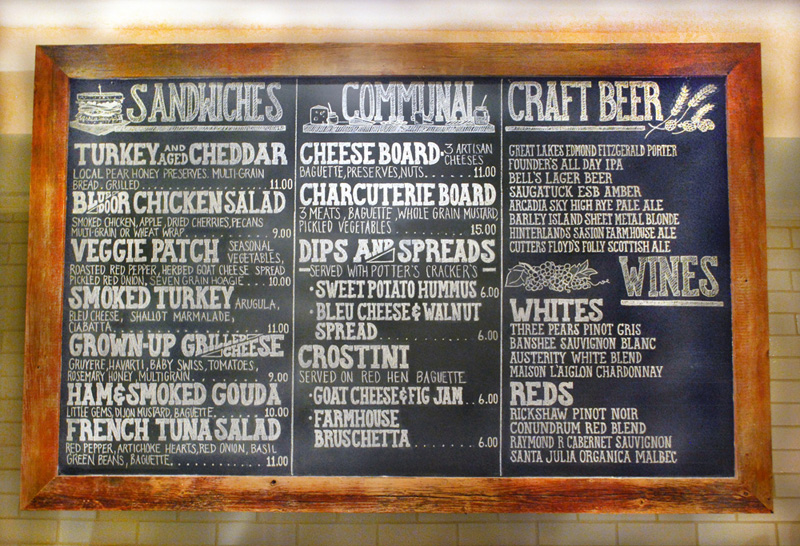 SANDWICHES
TURKEY AND AGED CHEDDAR
LOCAL PEAR HONEY PRESERVES. MULTI-GRAIN
BREAD, GRILLED ........ 11.00
BLUE DOOR CHICKEN SALAD
SMOKED CHICKEN, APPLE, DRIED CHERRIES, PECANS
MULTI-GRAIN OR WHEAT WRAP ........ 9.00
VEGGIE PATCH SEASONAL VEGETABLES,
ROASTED RED PEPPER, HERBED GOAT CHEESE SPREAD
PICKLED RED ONION, SEVEN GRAIN HOAGIE .... 10.00
SMOKED TURKEY ARUGULA,
BLEU CHEESE, SHALLOT MARMALADE,
CIABATTA ........ 11.00
GROWN-UP GRILLED CHEESE
GRUYERE, HAVARTI, BABY SWISS, TOMATOES,
ROSEMARY HONEY, MULTIGRAIN ........ 9.00
HAM & SMOKED GOUDA
LITTLE GEMS, DIJON MUSTARD, BAGUETTE ........ 10.00
FRENCH TUNA SALAD
RED PEPPER, ARTICHOKE HEARTS, RED ONION, BASIL
GREEN BEANS, BAGUETTE ........ 11.00
COMMUNAL
CHEESE BOARD • 3 ARTISAN CHEESES
BAGUETTE, PRESERVES, NUTS ........ 11.00
CHARCUTERIE BOARD
3 MEATS, BAGUETTE, WHOLE GRAIN MUSTARD,
PICKLED VEGETABLES ........ 15.00
DIPS AND SPREADS
SERVED WITH POTTER'S CRACKER'S
• SWEET POTATO HUMMUS 6.00
• BLEU CHEESE & WALNUT
SPREAD ........ 6.00
CROSTINI
SERVED ON RED HEN BAGUETTE
• GOAT CHEESE & FIG JAM .. 6.00
• FARMHOUSE
BRUSCHETTA ........ 6.00
CRAFT BEER
GREAT LAKES EDMOND FITZGERALD PORTER
FOUNDER'S ALL DAY IPA
BELL'S LAGER BEER
SAUGATUCK ESB AMBER
ARCADIA SKY HIGH RYE PALE ALE
BARLEY ISLAND SHEET METAL BLONDE
HINTERLANDS SASION FARMHOUSE ALE
CUTTERS FLOYD'S FOLLY SCOTTISH ALE
WINES
WHITES
THREE PEARS PINOT GRIS
BANSHEE SAUVIGNON BLANC
AUSTERITY WHITE BLEND
MAISON L'AIGLON CHARDONNAY
REDS
RICKSHAW PINOT NOIR
CONUNDRUM RED BLEND
RAYMOND R CABERNET SAUVIGNON
SANTA JULIA ORGANICA MALBEC